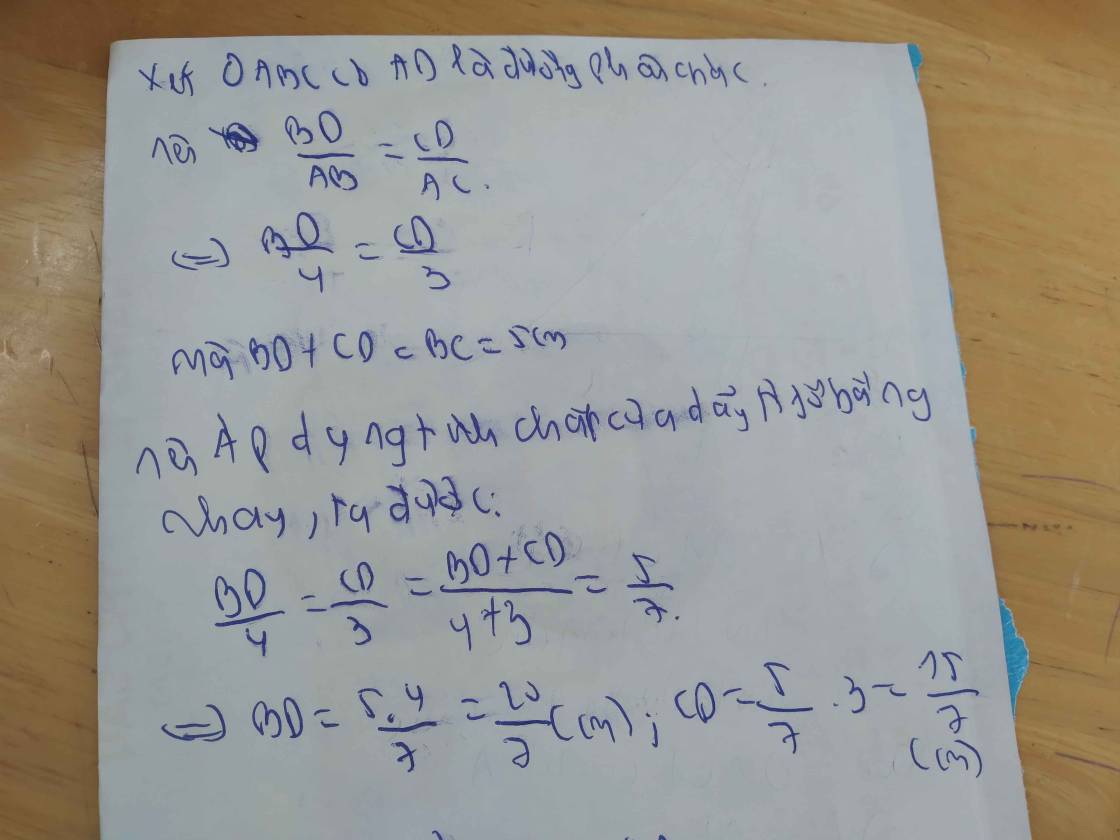 Xét △ABC có AD là đường phân giác.
nên BD/AB = CD/AC.
<=> BD/4 = CD/3
mà BD + CD = BC = 5cm
nên Áp dụng tính chất của dãy tỉ số bằng
nhau, ta được:
BD/4 = CD/3 = BD+CD/4+3 = 5/7.
<=> BD = 5.4/7 = 20/7 (cm); CD = 5/7 . 3 = 15/7
(cm)